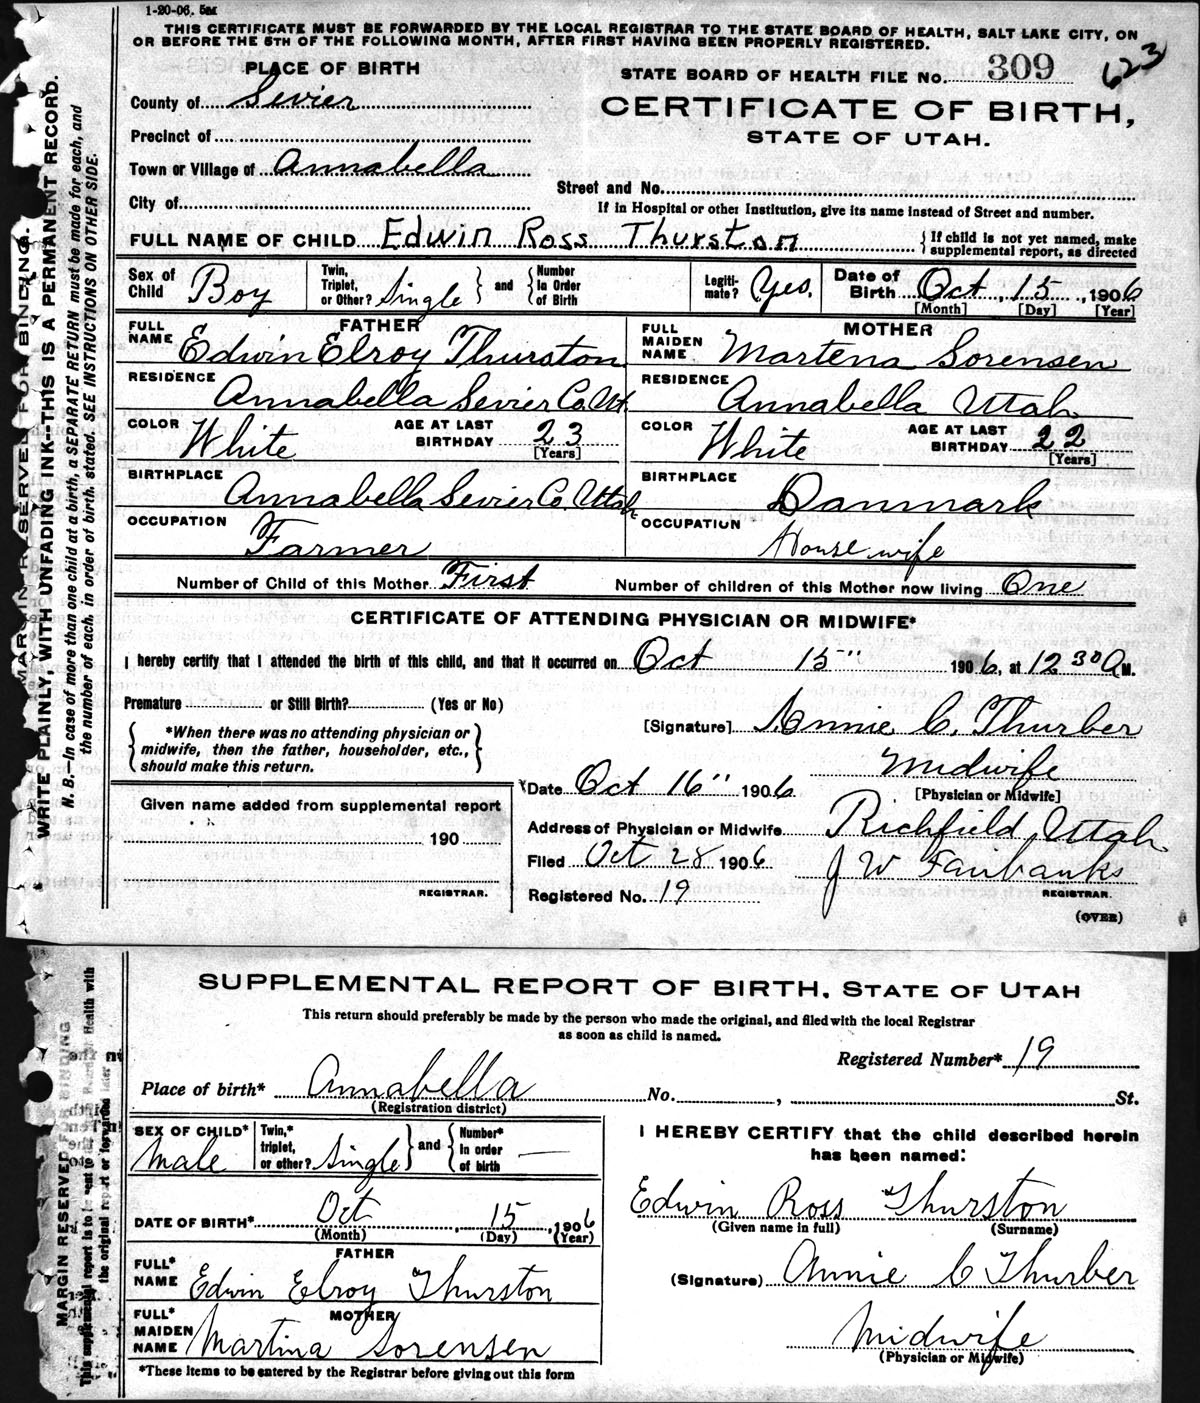 1-20-06. 5M
THIS CERTIFICATE MUST BE FORWARDED BY THE LOCAL REGISTRAR TO THE STATE BOARD OF HEALTH, SALT LAKE CITY, ON
OR BEFORE THE 5TH OF THE FOLLOWING MONTH, AFTER FIRST HAVING BEEN PROPERLY REGISTERED.
PLACE OF BIRTH
STATE BOARD OF HEALTH FILE No. 309 623
County of Sevier
CERTIFICATE OF BIRTH,
STATE OF UTAH.
Precinct of
Town or Village of Annabella
Street and No.
City of
If in Hospital or other Institution, give its name instead of Street and number.
FULL NAME OF CHILD Edwin Ross Thurston { If child is not yet named, make supplemental report, as directed
Sex of Child Boy Twin, Triplet, or Other? Single } and { Number in Order of Birth Legiti-mate? Yes. Date of Birth Oct, 15, 1906
[Month] [Day] [Year]
FATHER MOTHER
FULL NAME Edwin Elroy Thurston FULL MAIDEN NAME Martena Sorensen
RESIDENCE Annabella Sevier Co. Ut. RESIDENCE Annabella Utah
COLOR White AGE AT LAST BIRTHDAY 23 [Years] COLOR White AGE AT LAST BIRTHDAY 22 [Years]
BIRTHPLACE Annabella Sevier Co. Utah BIRTHPLACE Danmark
OCCUPATION Farmer OCCUPATION House wife
Number of Child of this Mother First Number of children of this Mother now living One
CERTIFICATE OF ATTENDING PHYSICIAN OR MIDWIFE*
I hereby certify that I attended the birth of this child, and that it occurred on Oct 15" 1906, at 12 30 A M.
Premature or Still Birth? (Yes or No)
[Signature] Annie C. Thurber
{ *When there was no attending physician or
midwife, then the father, householder, etc.,
should make this return. }
Midwife
[Physician or Midwife]
Date Oct 16" 1906
Given name added from supplemental report
190
REGISTRAR.
Address of Physician or Midwife Richfield, Utah
Filed Oct 28 1906 J W Fairbanks
REGISTRAR.
Registered No. 19
(OVER)
MARGIN RESERVED FOR BINDING.
WRITE PLAINLY, WITH UNFADING INK--THIS IS A PERMANENT RECORD.
N. B.—In case of more than one child at a birth, a SEPARATE RETURN must be made for each, and
the number of each, in order of birth, stated. SEE INSTRUCTIONS ON OTHER SIDE.
SUPPLEMENTAL REPORT OF BIRTH, STATE OF UTAH
This return should preferably be made by the person who made the original, and filed with the local Registrar
as soon as child is named.
Registered Number* 19
Place of birth* Annabella No. , St.
(Registration district)
SEX OF CHILD* Male Twin,* triplet, or other? Single } and { Number* in order of birth —
I HEREBY CERTIFY that the child described herein
has been named:
DATE OF BIRTH* Oct, 15, 1906
(Month) (Day) (Year)
Edwin Ross Thurston
(Given name in full) (Surname)
FATHER
FULL* NAME Edwin Elroy Thurston
(Signature) Annie C Thurber
MOTHER
FULL* MAIDEN NAME Martina Sorensen
Midwife
(Physician or Midwife)
*These items to be entered by the Registrar before giving out this form
MARGIN RESERVED FOR BINDING